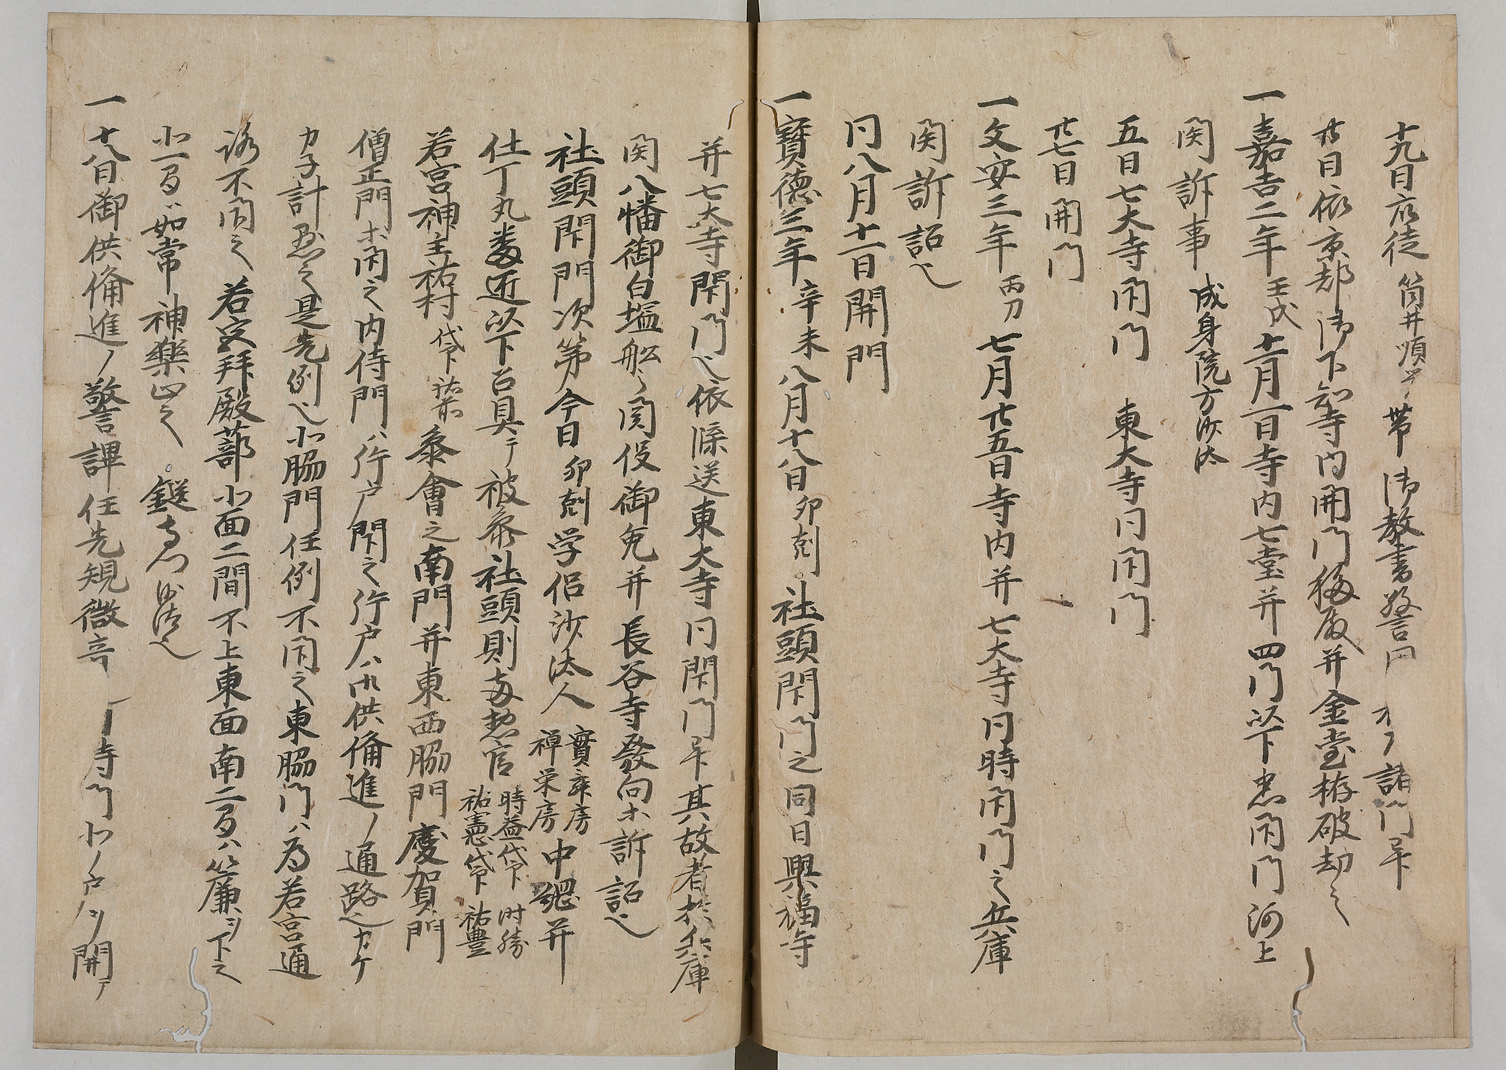 十九日衆徒筒井順〻帯御教書警固 諸門畢
廿日依京都御下知寺内開門稲辰并金堂桙破却之
一嘉吉二年壬戌十一月一日寺内七堂并四門以下悉閇門河上
関訴事 成身院方沙汰
五日七大寺閇門 東大寺同閇門
廿七日開門
一文安三年丙刀七月廿五日寺内并七大寺同時閇門之兵庫
関訴詔也
同八月十一日開門
一寳徳三年辛未八月十八日卯剋社頭閇門之同日興福寺
并七大寺閇門也依牒送東大寺同閇門畢其故者於兵庫
関八幡御白塩船〻関役御免并長谷寺発向ホ訴詔也
社頭閇門次第今日卯剋学侶沙汰人 實弥房 禅栄房 中綱并
仕丁丸数近以下召具テ被参社頭則両惣官 時益代下 時勝 祐憲代下 祐豊
若宮神主祐村代下祐崇参會之南門并東西脇門慶賀門
僧正門ホ閇之内侍門ハ片戸閇之片戸ハ御供備進ノ通路也カケ
カ子計懸之是先例也小脇門任例不閇之東脇門ハ為若宮通
路不閇之若宮拝殿蔀北面二間不上東面南二間ハ簾ヲ下之
北一間ハ如常神楽止之 鎰
一十八日御供備進ノ警蹕任先規微音 寺門北ノ戸ヲ開テ